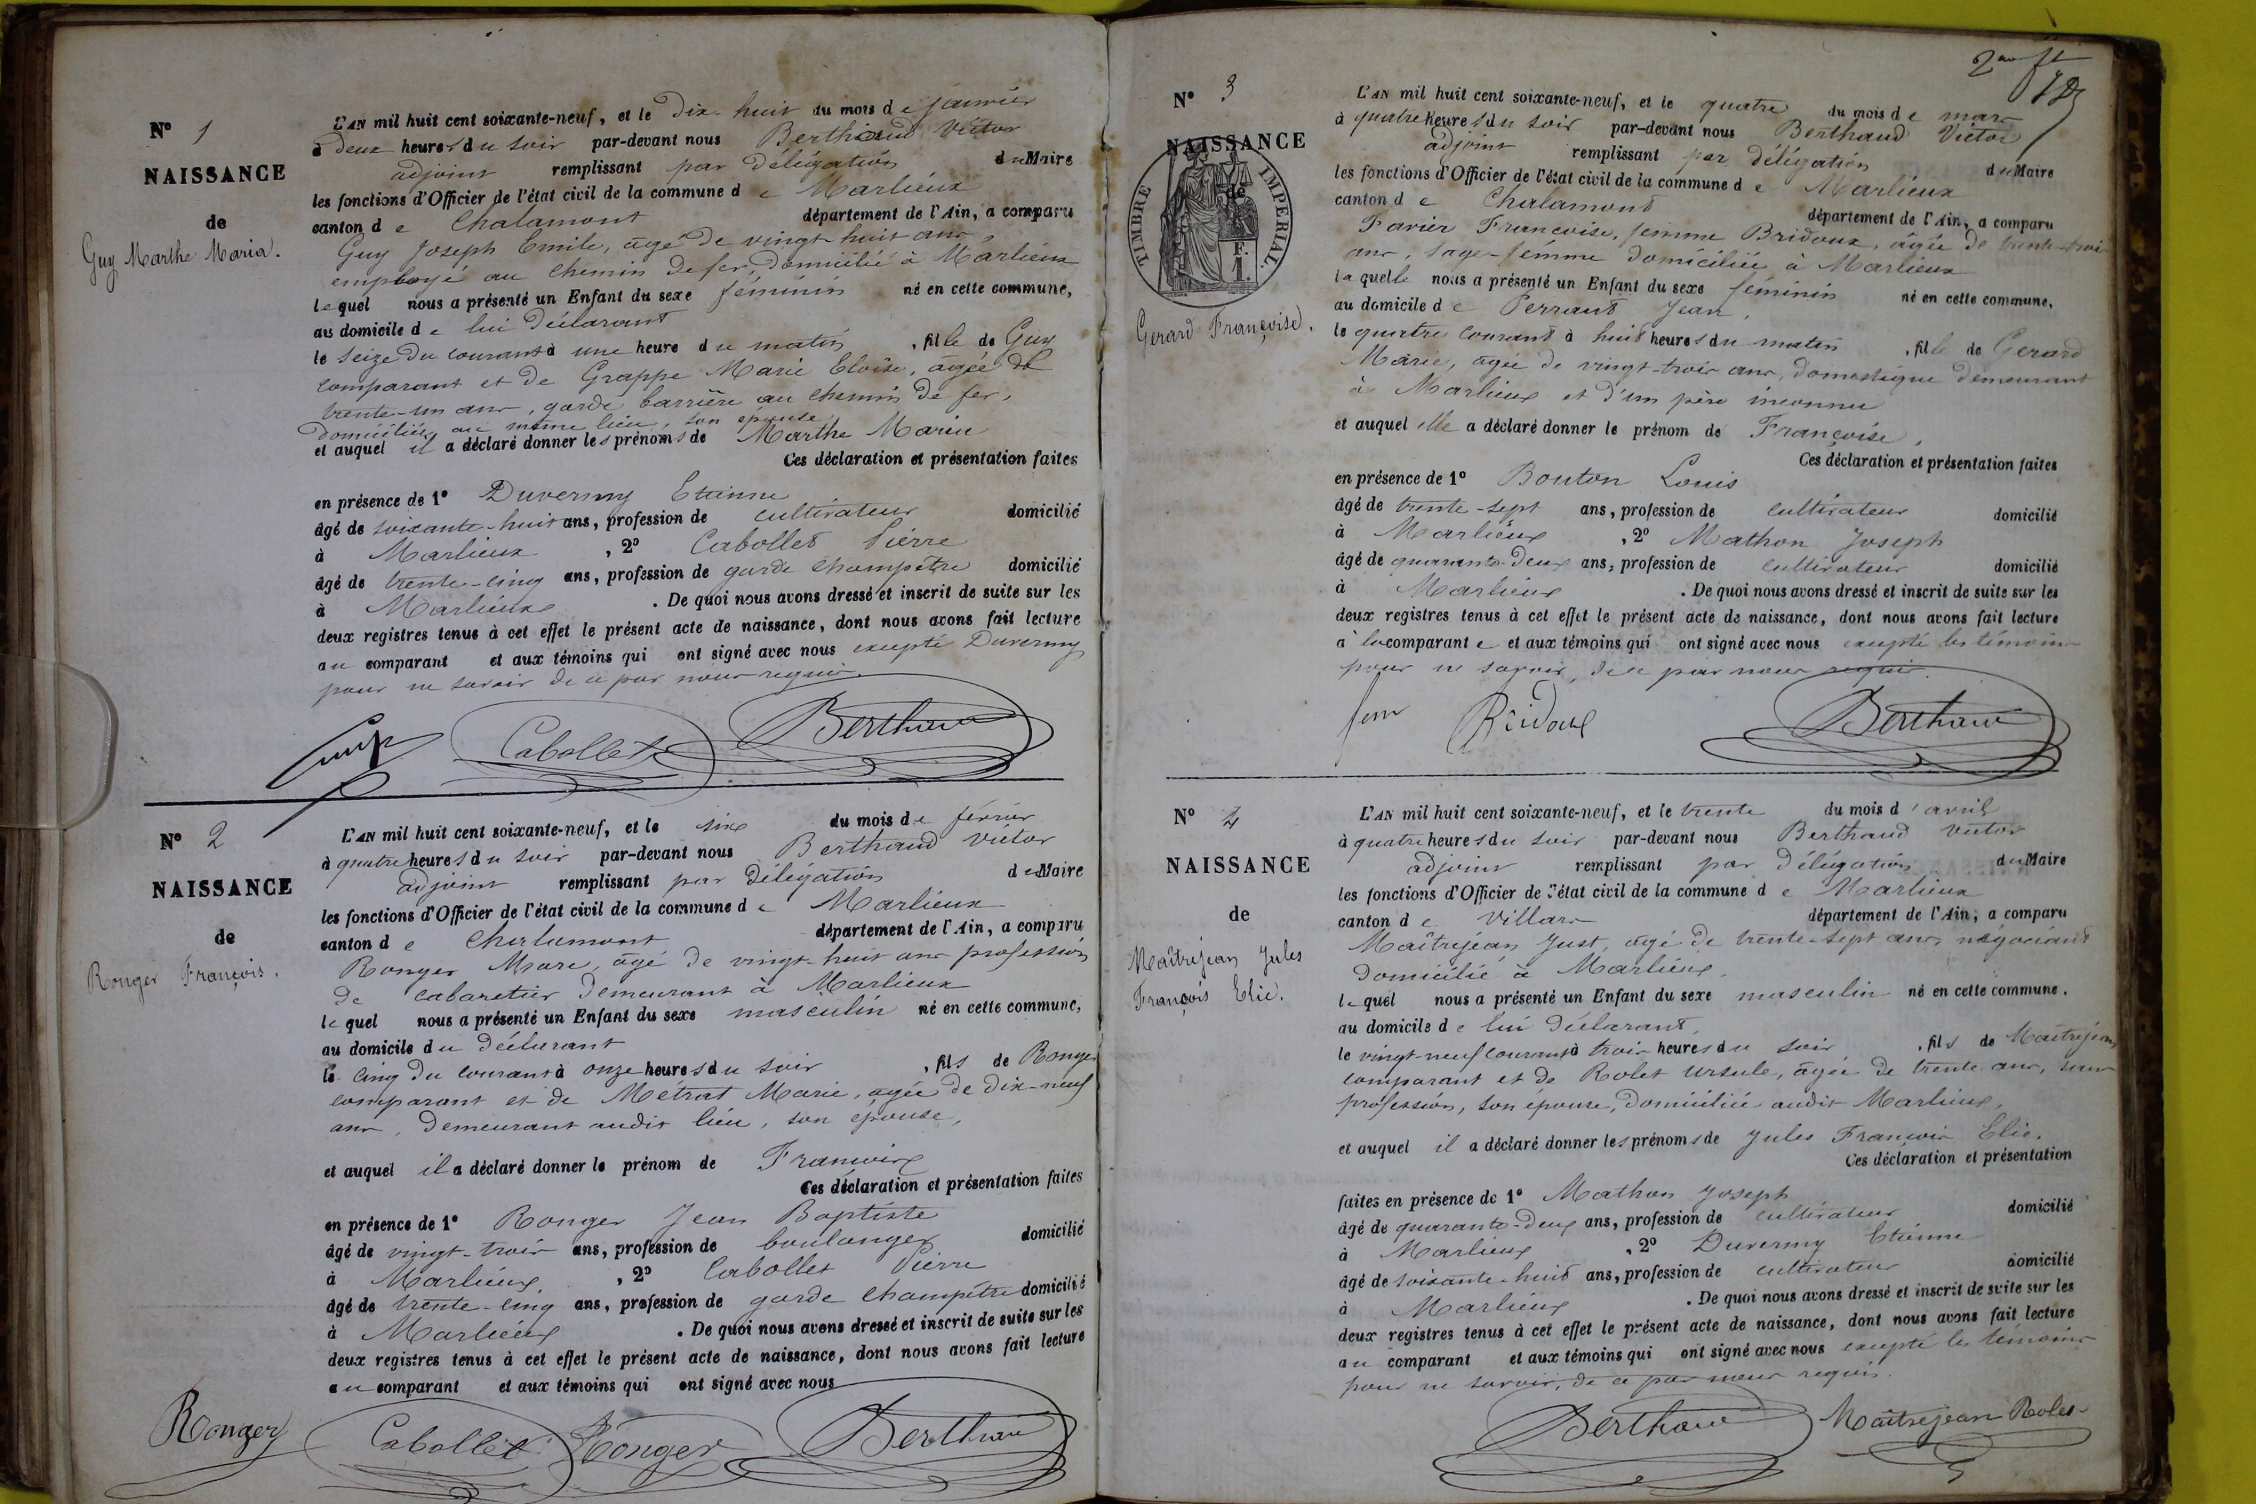 N° 1
NAISSANCE
de
Guy Marthe Maria.
L'AN mil huit cent soixante-neuf, et le Dix-huit du mois de janvier
à deux heures du soir par-devant nous Berthaud Victor
adjoint remplissant par délégation du Maire
les fonctions d'Officier de l'état civil de la commune de Marlieux
canton de Chalamont département de l'Ain, a comparu
Guy Joseph Emile, âgé de vingt-huit ans,
employé au chemin de fer, domicilié à Marlieux
lequel nous a présenté un Enfant du sexe féminin né en cette commune,
au domicile de lui déclarant
le seize du courant à une heure du matin, fille de Guy
comparant et de Grappe Marie Eloïse, âgée de
trente-un ans, garde barrière au chemin de fer,
domiciliée au même lieu, son épouse
et auquel il a déclaré donner les prénoms de Marthe Maria
Ces déclaration et présentation faites
en présence de 1° Duvermy Etienne
âgé de soixante-huit ans, profession de cultivateur domicilié
à Marlieux, 2° Cabollet Pierre
âgé de trente-cinq ans, profession de garde champêtre domicilié
à Marlieux. De quoi nous avons dressé et inscrit de suite sur les
deux registres tenus à cet effet le présent acte de naissance, dont nous avons fait lecture
au comparant et aux témoins qui ont signé avec nous excepté Duvermy
pour ne savoir de ce par nous requis.
Guy Cabollet Berthaud
N° 2
NAISSANCE
de
Ronger François.
L'AN mil huit cent soixante-neuf, et le six du mois de février
à quatre heures du soir par-devant nous Berthaud Victor
adjoint remplissant par délégation du Maire
les fonctions d'Officier de l'état civil de la commune de Marlieux
canton de Chalamont département de l'Ain, a comparu
Ronger Marc, âgé de vingt-huit ans profession
de cabaretier demeurant à Marlieux
lequel nous a présenté un Enfant du sexe masculin né en cette commune,
au domicile du déclarant
le cinq du courant à onze heures du soir, fils de Ronger
comparant et de Métrat Marie, âgée de dix-neuf
ans, demeurant audit lieu, son épouse,
et auquel il a déclaré donner le prénom de François
Ces déclaration et présentation faites
en présence de 1° Ronger Jean Baptiste
âgé de vingt-trois ans, profession de boulanger domicilié
à Marlieux, 2° Cabollet Pierre
âgé de trente-cinq ans, profession de garde champêtre domicilié
à Marlieux. De quoi nous avons dressé et inscrit de suite sur les
deux registres tenus à cet effet le présent acte de naissance, dont nous avons fait lecture
au comparant et aux témoins qui ont signé avec nous
Ronger Cabollet Ronger Berthaud
N° 3
NAISSANCE
de
TIMBRE IMPERIAL.
F.
1.
Gerard Françoise.
L'AN mil huit cent soixante-neuf, et le quatre du mois de mars
à quatre heures du soir par-devant nous Berthaud Victor
adjoint remplissant par délégation du Maire
les fonctions d'Officier de l'état civil de la commune de Marlieux
canton de Chalamont département de l'Ain, a comparu
Favier Françoise, femme Bridoux, âgée de trente-trois
ans, sage-femme domiciliée à Marlieux
laquelle nous a présenté un Enfant du sexe féminin né en cette commune,
au domicile de Perraud Jean,
le quatre courant à huit heures du matin, fille de Gerard
Marie, âgée de vingt-trois ans, domestique demeurant
à Marlieux et d'un père inconnu
et auquel elle a déclaré donner le prénom de Françoise.
Ces déclaration et présentation faites
en présence de 1° Bouton Louis
âgé de trente-sept ans, profession de cultivateur domicilié
à Marlieux, 2° Mathon Joseph
âgé de quarante-deux ans, profession de cultivateur domicilié
à Marlieux. De quoi nous avons dressé et inscrit de suite sur les
deux registres tenus à cet effet le présent acte de naissance, dont nous avons fait lecture
à la comparante et aux témoins qui ont signé avec nous excepté les témoins
pour ne savoir, de ce par nous requis.
fem Bridoux Berthaud
N° 4
NAISSANCE
de
Maîtrejean Jules
François Elie.
L'AN mil huit cent soixante-neuf, et le trente du mois d'avril
à quatre heures du soir par-devant nous Berthaud Victor
adjoint remplissant par délégation du Maire
les fonctions d'Officier de l'état civil de la commune de Marlieux
canton de Villars département de l'Ain, a comparu
Maîtrejean Just, âgé de trente-sept ans, négociant
domicilié à Marlieux.
lequel nous a présenté un Enfant du sexe masculin né en cette commune.
au domicile de lui déclarant.
le vingt-neuf courant à trois heures du soir, fils de Maîtrejean
comparant et de Rolet Ursule, âgée de trente ans, sans
profession, son épouse, domiciliée audit Marlieux.
et auquel il a déclaré donner les prénoms de Jules François Elie.
Ces déclaration et présentation
faites en présence de 1° Mathon Joseph
âgé de quarante-deux ans, profession de cultivateur domicilié
à Marlieux, 2° Duvermy Etienne
âgé de soixante-huit ans, profession de cultivateur domicilié
à Marlieux. De quoi nous avons dressé et inscrit de suite sur les
deux registres tenus à cet effet le présent acte de naissance, dont nous avons fait lecture
au comparant et aux témoins qui ont signé avec nous excepté les témoins
pour ne savoir, de ce par nous requis.
Berthaud Maîtrejean Rolet